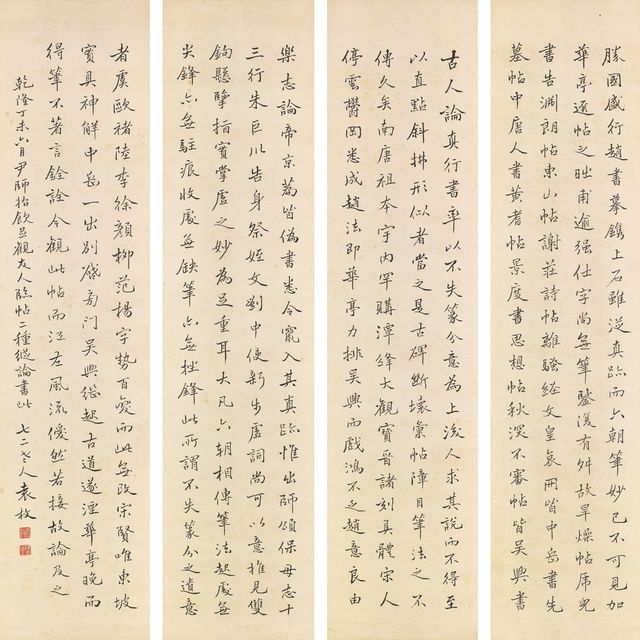 勝國盛行趙書摹鐫上石雖逼真跡而六朝筆妙已不可見加
華亭逐帖之昢甫逾强仕字尚無筆鋻後有舛故旱燥帖席兜
書告淵朗帖東山帖謝莊詩帖離騷經文皇哀冊皆中岳書先
墓帖中唐人書黃耇帖景度書思想帖秋深不審帖皆吳興書
古人論真行書率以不失篆分意為上後人求其說而不得至
以直點斜拂形似者當之是古碑斷壞彙帖障目筆法之不
傳久矣南唐祖本宇内罕購潭絳大觀寶晉諸刻具體宋人
停雲鬱岡悉成趙法即華亭力排吳興而戲鴻不乏趙意良由
樂志論帝京篇皆偽書悉令竄入其真跡惟出師頌保母志十
三行朱巨川告身祭姪文劉中使新步虛詞尚可以意推見雙
鉤懸擘指實掌虛之妙為足重耳大凡六朝相傳筆法起處無
尖鋒亦無駐痕收處無缺筆亦無挫鋒此所謂不失篆分之遺意
者虞歐褚陸李徐顏柳范楊字勢百變而此無改宋賢唯東坡
實具神解中岳一出別啟旁門吳興繼起古道遂湮華亭晚而
得筆不著言銓詮今觀此帖而江左風流僾然若接故論及之
乾隆丁未六月尹師招飲並觀友人臨帖二種縱論書此 七二老人袁枚